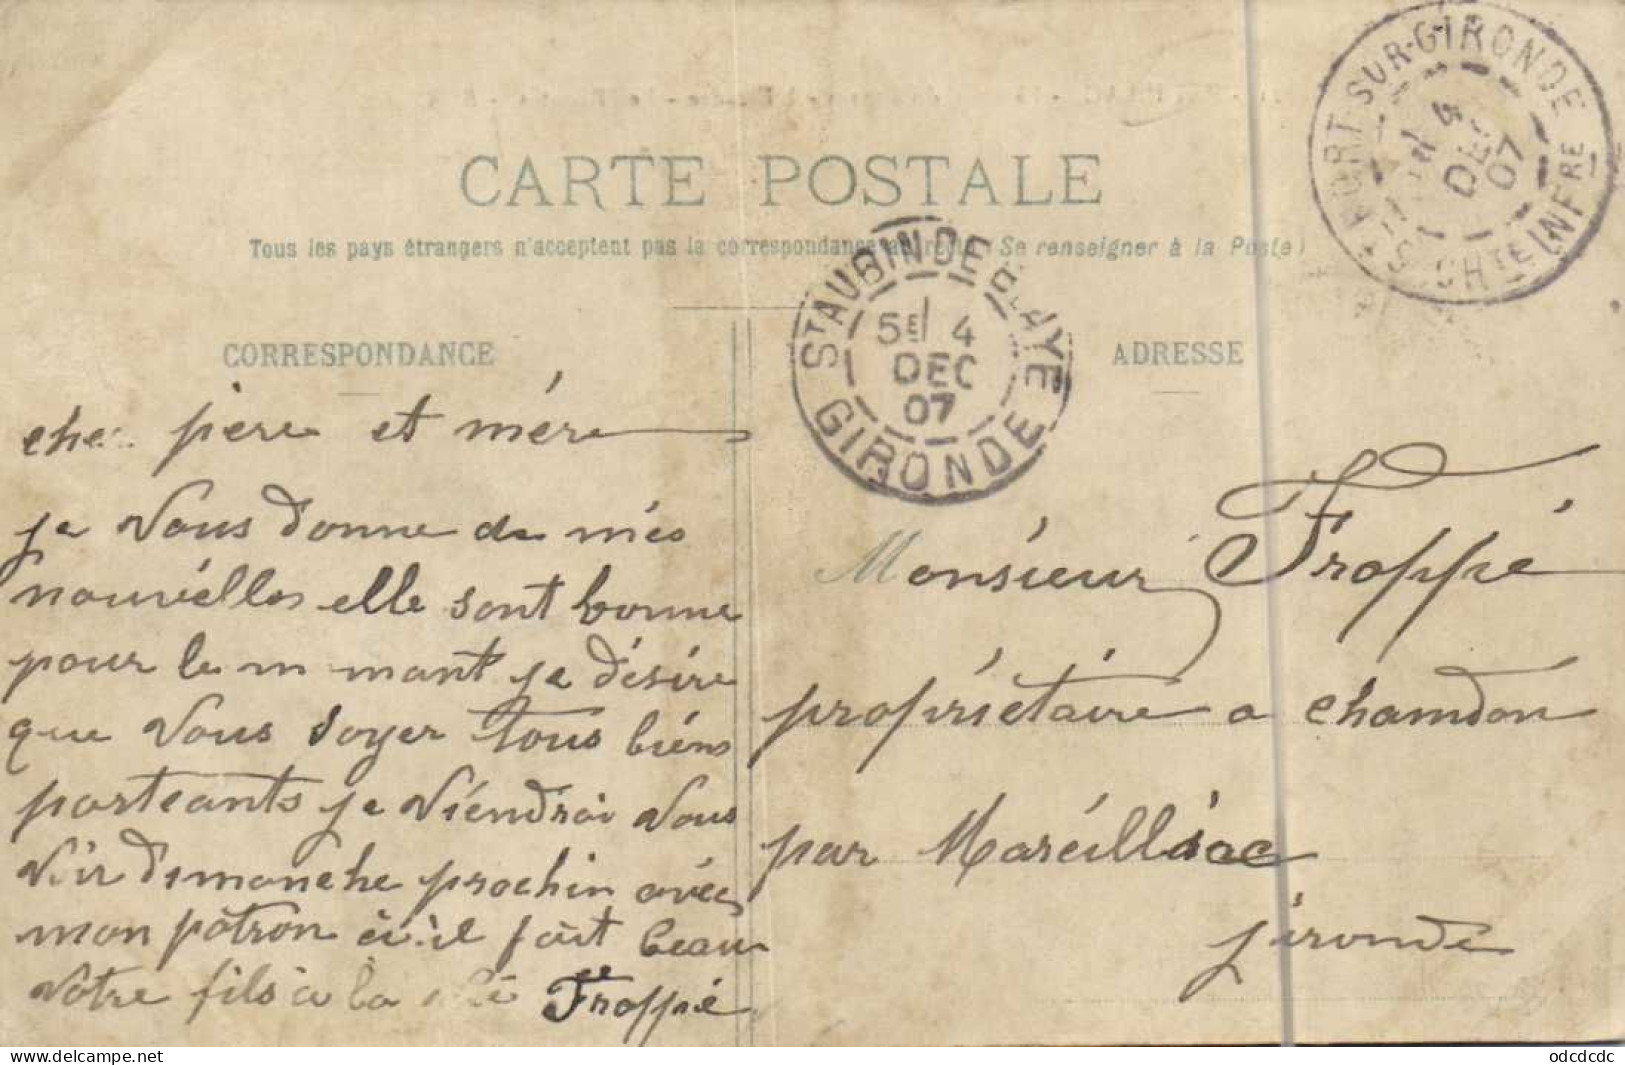 CARTE POSTALE
Tous les pays étrangers n'acceptent pas la correspondance au recto (Se renseigner à la Poste)
PORT-SUR-GIRONDE
CHTE INFRE
4
DEC
07
ST AUBIN DE BLAYE
5E 4
DEC
07
GIRONDE
CORRESPONDANCE
ADRESSE
cher père et mère
je vous donne de més
nouvélles elle sont bonne
pour le m mant je désire
que vous soyer tous biéns
porteants je viéndrai vous
voir dimanche prochin avéc
mon patron si il fait beau
votre fils a la Froppé
Monsieur Froppé
propriétaire a chamdon
par Maréilliac
gironde
www.delcampe.net
odcdcdc